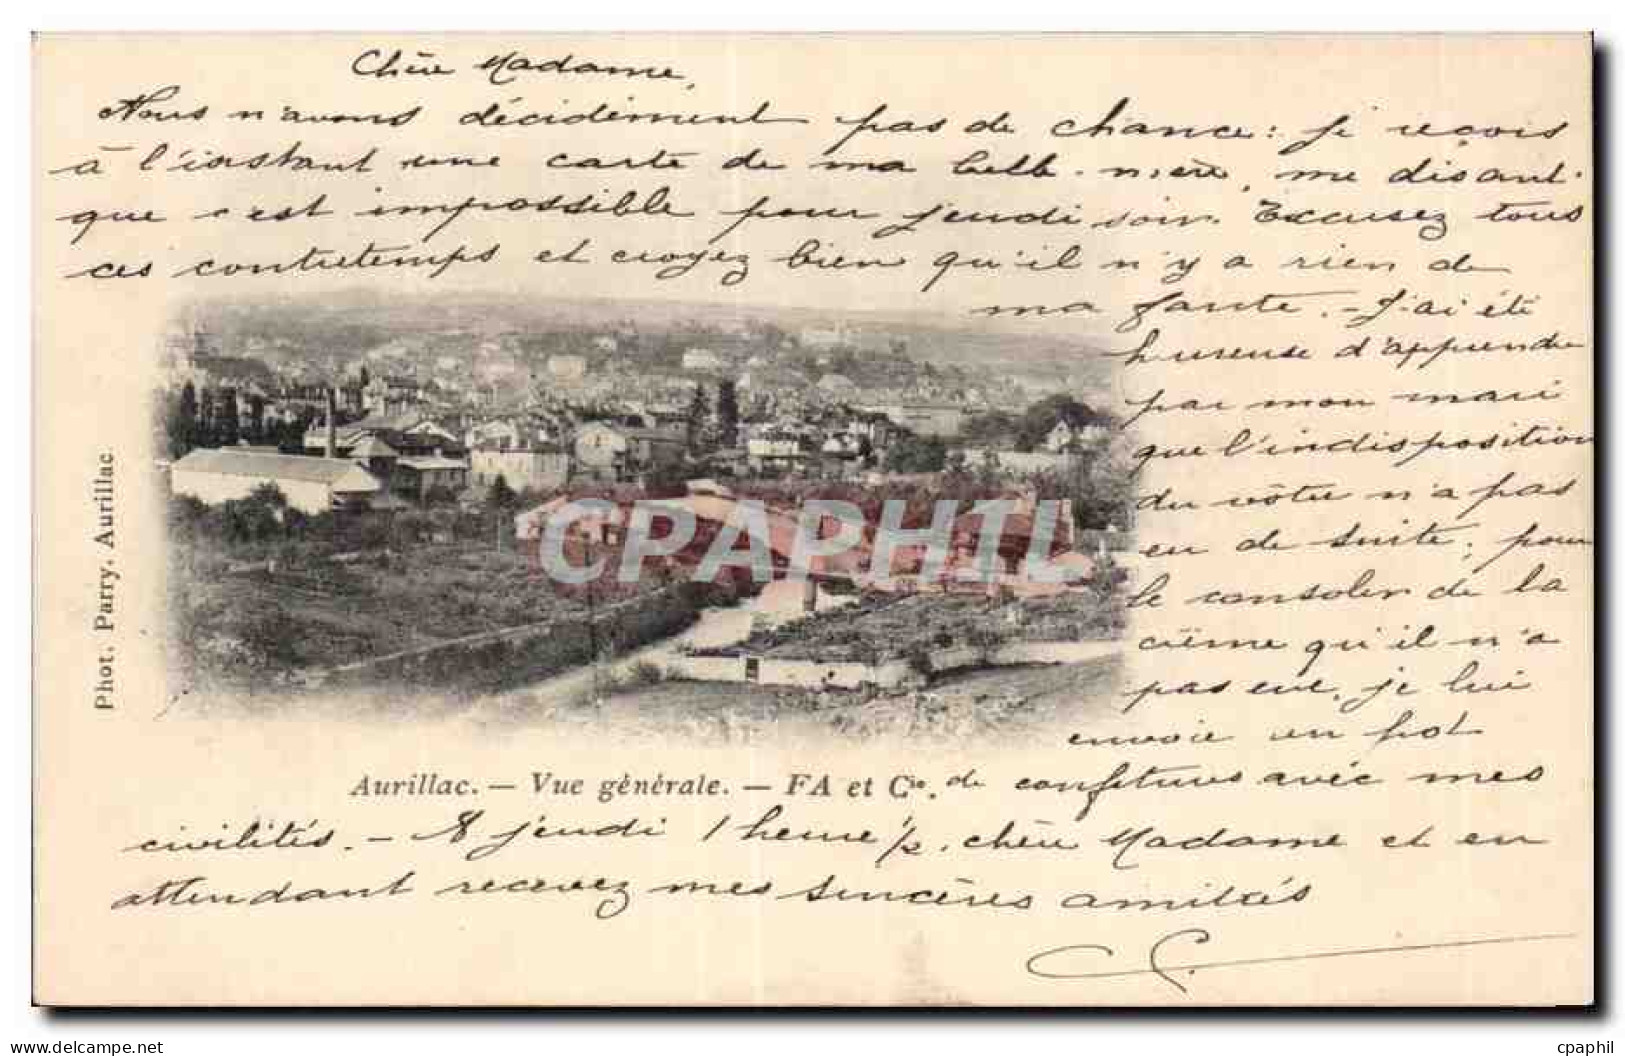 Chère Madame,
Nous n'avons décidément pas de chance : je reçois
à l'instant une carte de ma belle-mère, me disant
que c'est impossible pour jeudi soir. Excusez tous
ces contretemps et croyez bien qu'il n'y a rien de
ma faute. - J'ai été
heureuse d'apprendre
par mon mari
que l'indisposition
du vôtre n'a pas
eu de suite ; pour
le consoler de la
crème qu'il n'a
pas eue, je lui
envoie un pot
de confitures avec mes
civilités. - A jeudi 1 heure 1/2, chère Madame et en
attendant recevez mes sincères amitiés
Phot. Parry. Aurillac
Aurillac. — Vue générale. — FA et Cie.
CPAPHIL
www.delcampe.net
cpaphil